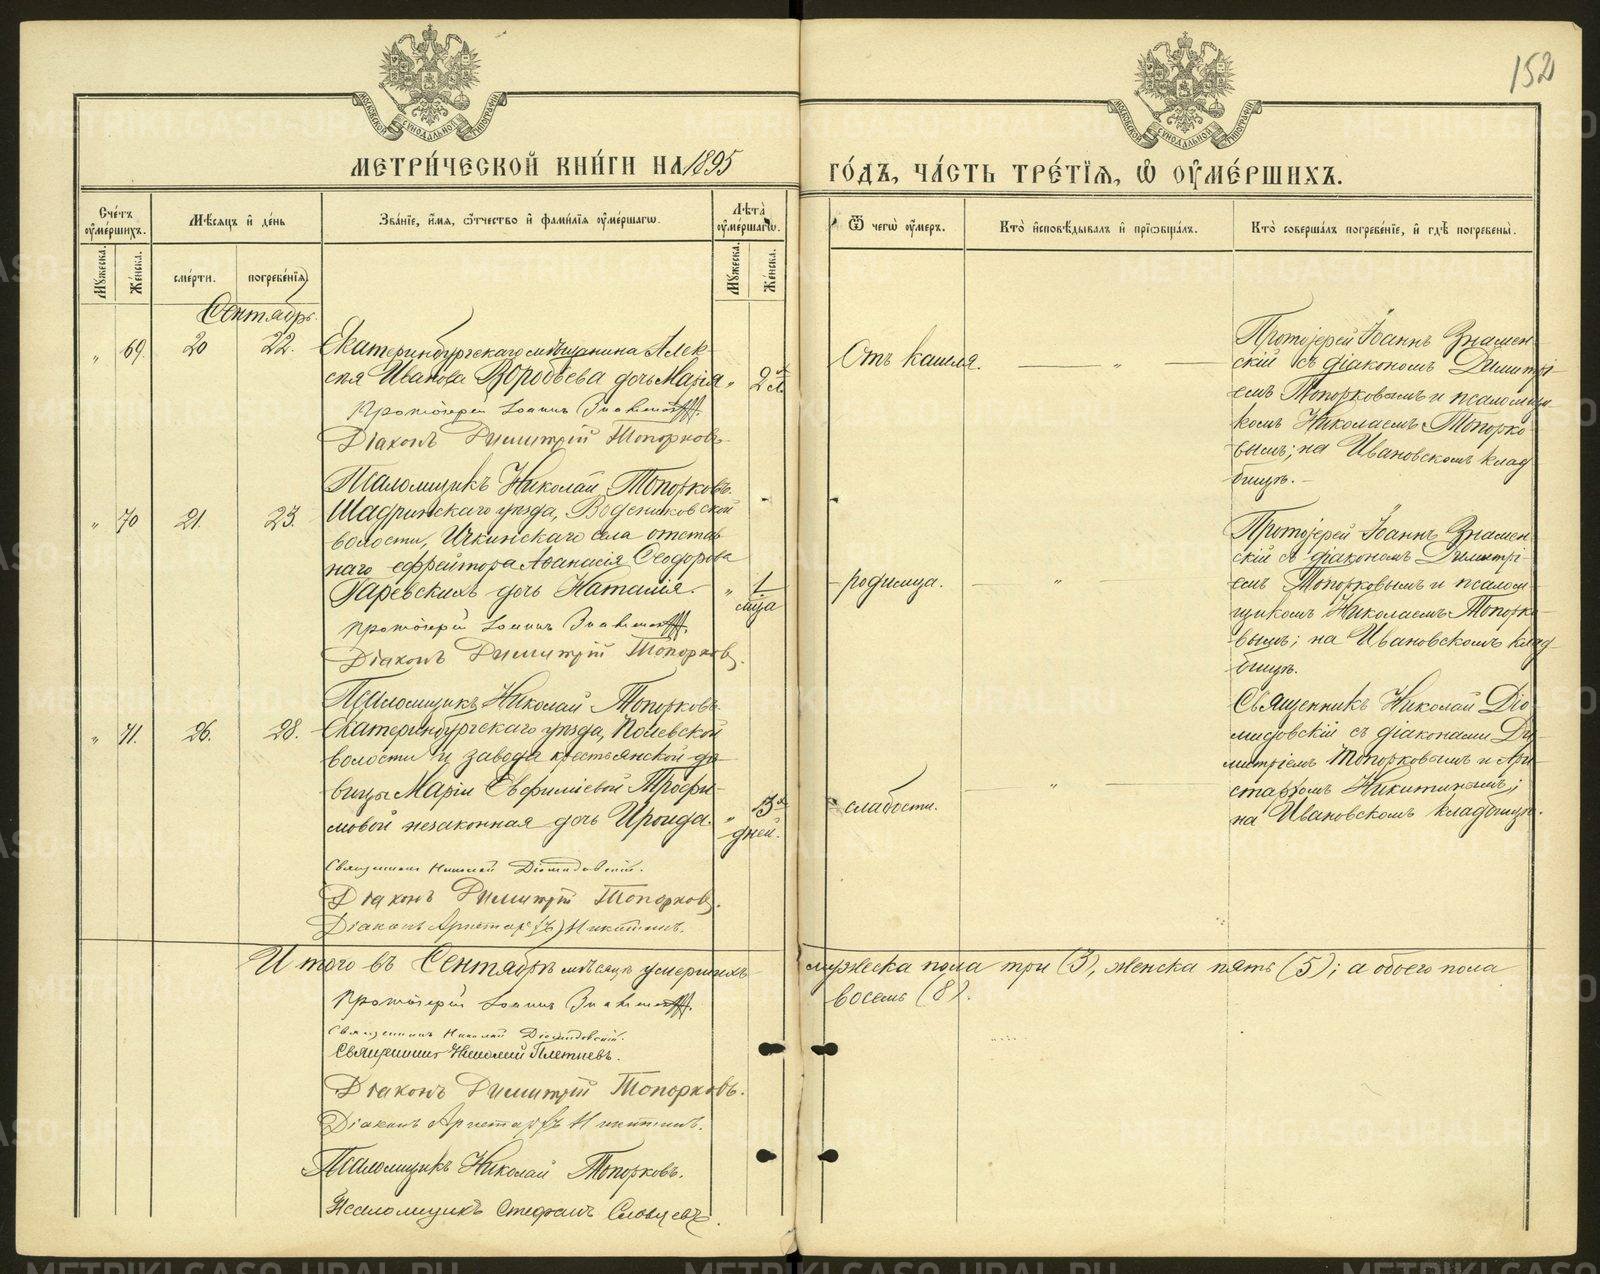 152
МОСКОВСКОЙ СѴНОДАЛЬНОЙ ТИПОГРАФІИ
МОСКОВСКОЙ СѴНОДАЛЬНОЙ ТИПОГРАФІИ
МЕТРИ́ЧЕСКОЙ КНИ́ГИ НА 1895 ГО́ДЪ, ЧА́СТЬ ТРЕ́ТІѦ, Ѡ҆ ОУ҆МЕ́РШИХЪ.
Сче́тъ оу҆ме́ршихъ.
Мѣ́сяцъ и҆ де́нь
Зва́нїе, и҆́мѧ, ѻ҆́тчество и҆ фами́лїѧ оу҆ме́ршагѡ.
Лѣ́та оу҆ме́ршагѡ.
Ѿ чегѡ̀ оу҆́меръ.
Кто̀ и҆сповѣ́дывалъ и҆ прїѡбща́лъ.
Кто̀ соверша́лъ погребе́нїе, и҆ гдѣ̀ погребены̀.
Му́жеска.
Же́нска.
сме́рти.
погребе́нїѧ
Му́жеска.
Же́нска.
Сентябрь.
" 69. 20 22.
Екатеринбургскаго мѣщанина Алек-
сѣя Иванова Воробьева дочь Марія " 2 л.
Протоіерей Іоаннъ Знаменскій.
Діаконъ Димитрій Топорковъ
Псаломщикъ Николай Топорковъ.
Отъ кашля. — " —
Протоіерей Іоаннъ Знамен-
скій съ діакономъ Димитрі-
емъ Топорковымъ и псаломщи-
комъ Николаемъ Топорко-
вымъ; на Ивановскомъ клад
бищѣ. -
" 70 21. 23.
Шадринскаго уѣзда, Водениковской
волости, Ичкинскаго села отстав
наго ефрейтора Аѳанасія Ѳеодорова
Гаревскихъ дочь Наталія. " 1 мца
Протоіерей Іоаннъ Знаменскій.
Діаконъ Димитрій Топорковъ.
Псаломщикъ Николай Топорковъ.
родимца. — " —
Протоіерей Іоаннъ Знамен
скій съ діакономъ Димитрі-
емъ Топорковымъ и псалом-
щикомъ Николаемъ Топорко-
вымъ; на Ивановскомъ клад-
бищѣ.
" 71. 26. 28.
Екатеринбургскаго уѣзда, Полевской
волости и завода крестьянской дѣ-
вицы Маріи Евфиміевой Трофи-
мовой незаконная дочь Ироида. " 3 дней.
Священникъ Николай Діомидовскій.
Діаконъ Димитрій Топорковъ.
Діаконъ Аристархъ Никитинъ.
слабости. — " —
Священникъ Николай Діо-
мидовскій съ діаконами Ди-
митріемъ Топорковымъ и Ари-
стархомъ Никитинымъ;
на Ивановскомъ кладбищѣ.
Итого въ Сентябрѣ мѣсяцѣ умершихъ мужеска пола три (3), женска пять (5); а обоего пола
восемь (8).
Протоіерей Іоаннъ Знаменскій.
Священникъ Николай Діомидовскій.
Священникъ Николай Плетневъ.
Діаконъ Димитрій Топорковъ.
Діаконъ Аристархъ Никитинъ.
Псаломщикъ Николай Топорковъ.
Псаломщикъ Стефанъ Словцевъ.
METRIKI.GASO-URAL.RU